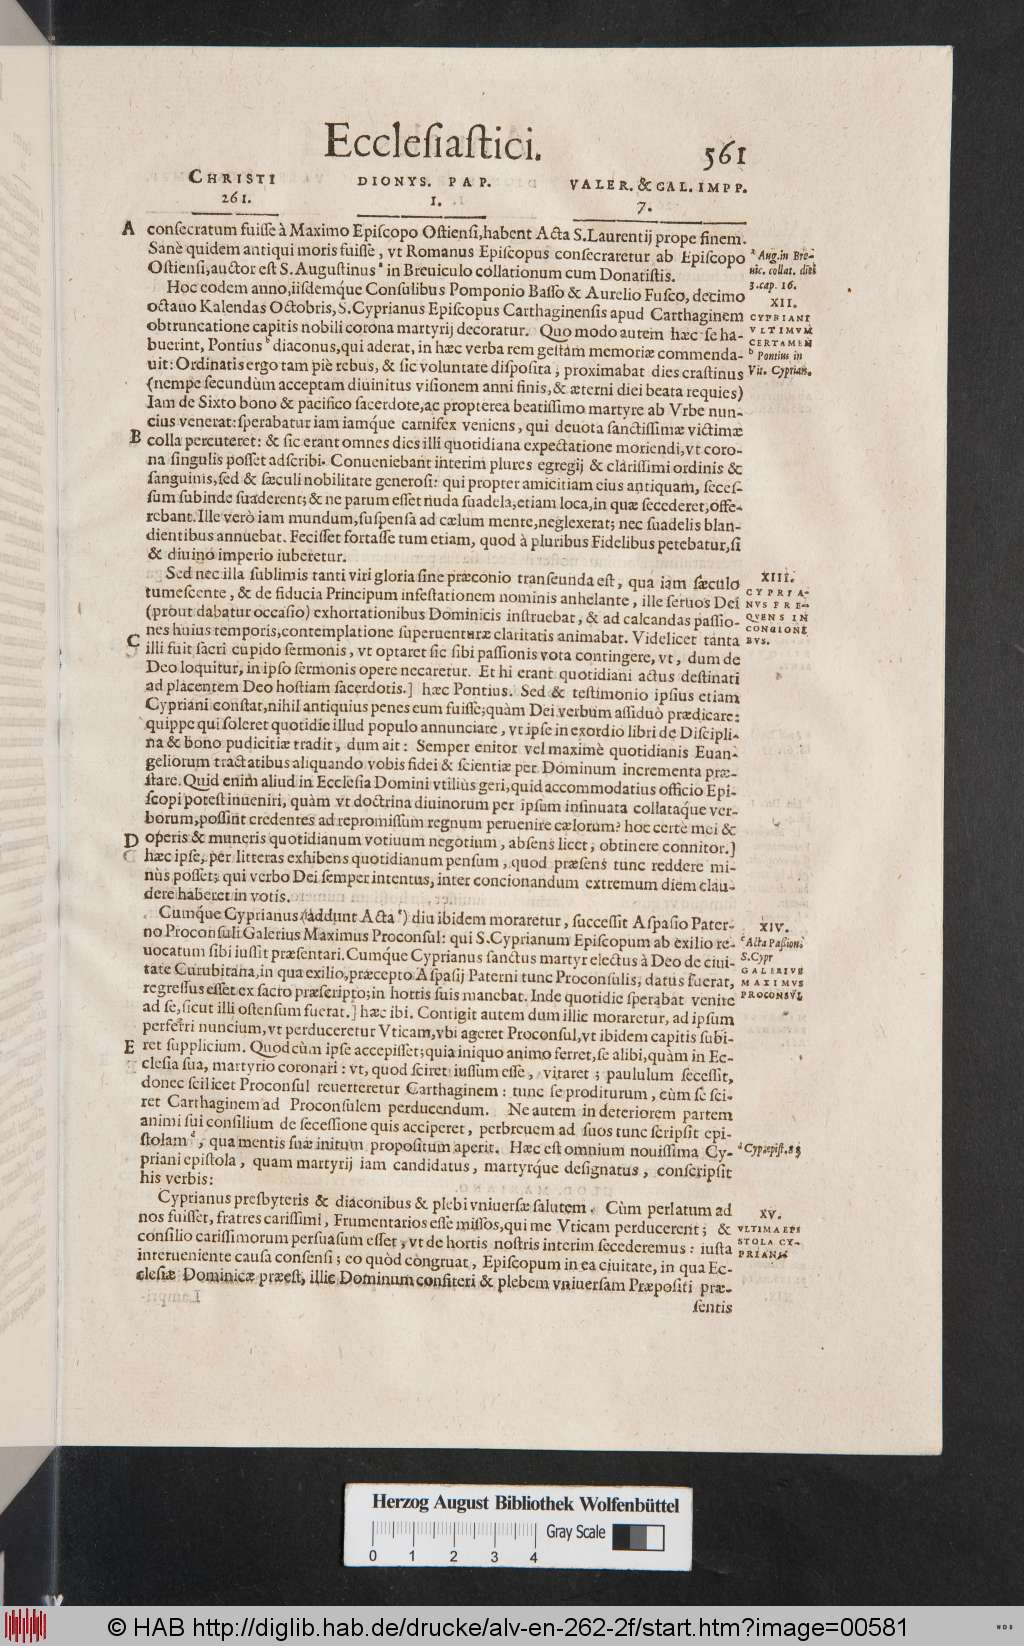 Ecclesiastici. 561
CHRISTI DIONYS. PAP. VALER. & GAL. IMPP.
261. 1. 7.
A consecratum fuisse à Maximo Episcopo Ostiensi, habent Acta S. Laurentij prope finem.
Sanè quidem antiqui moris fuisse, vt Romanus Episcopus consecraretur ab Episcopo
Ostiensi, auctor est S. Augustinus ᵃ in Breuiculo collationum cum Donatistis.
ᵃ Aug. in Bre-
uic. collat. diei
3. cap. 16.
Hoc eodem anno, iisdemque Consulibus Pomponio Basso & Aurelio Fusco, decimo
octauo Kalendas Octobris, S. Cyprianus Episcopus Carthaginensis apud Carthaginem
obtruncatione capitis nobili corona martyrij decoratur. Quo modo autem hæc se ha-
buerint, Pontius ᵇ diaconus, qui aderat, in hæc verba rem gestam memoriæ commenda-
uit: Ordinatis ergo tam piè rebus, & sic voluntate disposita, proximabat dies crastinus
XII.
CYPRIANI
VLTIMVM
CERTAMEN
ᵇ Pontius in
Vit. Cyprian.
(nempe secundùm acceptam diuinitus visionem anni finis, & æterni diei beata requies)
Iam de Sixto bono & pacifico sacerdote, ac propterea beatissimo martyre ab Vrbe nun-
cius venerat: sperabatur iam iamque carnifex veniens, qui deuota sanctissimæ victimæ
B colla percuteret: & sic erant omnes dies illi quotidiana expectatione moriendi, vt coro-
na singulis posset adscribi. Conueniebant interim plures egregij & clarissimi ordinis &
sanguinis, sed & sæculi nobilitate generosi: qui propter amicitiam eius antiquam, seces-
sum subinde suaderent; & ne parum esset nuda suadela, etiam loca, in quæ secederet, offe-
rebant. Ille verò iam mundum, suspensa ad cælum mente, neglexerat; nec suadelis blan-
dientibus annuebat. Fecisset fortasse tum etiam, quod à pluribus Fidelibus petebatur, si
& diuino imperio iuberetur.
Sed nec illa sublimis tanti viri gloria sine præconio transeunda est, qua iam sæculo
tumescente, & de fiducia Principum infestationem nominis anhelante, ille seruos Dei
(prout dabatur occasio) exhortationibus Dominicis instruebat, & ad calcandas passio-
nes huius temporis, contemplatione superuenturæ claritatis animabat. Videlicet tanta
XIII.
CYPRIA-
NVS FRE-
QVENS IN
CONCIONI
BVS.
C illi fuit sacri cupido sermonis, vt optaret sic sibi passionis vota contingere, vt, dum de
Deo loquitur, in ipso sermonis opere necaretur. Et hi erant quotidiani actus destinati
ad placentem Deo hostiam sacerdotis.] hæc Pontius. Sed & testimonio ipsius etiam
Cypriani constat, nihil antiquius penes eum fuisse; quàm Dei verbum assiduò prædicare:
quippe qui soleret quotidie illud populo annunciare, vt ipse in exordio libri de Discipli-
na & bono pudicitiæ tradit, dum ait: Semper enitor vel maximè quotidianis Euan-
geliorum tractatibus aliquando vobis fidei & scientiæ per Dominum incrementa præ-
stare. Quid enim aliud in Ecclesia Domini vtilius geri, quid accommodatius officio Epi-
scopi potest inueniri, quàm vt doctrina diuinorum per ipsum insinuata collataque ver-
borum, possint credentes ad repromissum regnum peruenire cælorum? hoc certè mei &
D operis & muneris quotidianum votiuum negotium, absens licet, obtinere connitor.]
hæc ipse, per litteras exhibens quotidianum pensum, quod præsens tunc reddere mi-
nùs posset; qui verbo Dei semper intentus, inter concionandum extremum diem clau-
dere haberet in votis.
Cumque Cyprianus (addunt Acta ᶜ) diu ibidem moraretur, successit Aspasio Pater-
no Proconsuli Galerius Maximus Proconsul: qui S. Cyprianum Episcopum ab exilio re-
uocatum sibi iussit præsentari. Cumque Cyprianus sanctus martyr electus à Deo de ciui-
tate Curubitana, in qua exilio, præcepto Aspasij Paterni tunc Proconsulis, datus fuerat,
regressus esset ex sacro præscripto; in hortis suis manebat. Inde quotidie sperabat venire
XIV.
ᶜ Acta Passioni
S. Cypr
GALERIVS
MAXIMVS
PROCONSVL
ad se, sicut illi ostensum fuerat.] hæc ibi. Contigit autem dum illic moraretur, ad ipsum
perferri nuncium, vt perduceretur Vticam, vbi ageret Proconsul, vt ibidem capitis subi-
E ret supplicium. Quod cùm ipse accepisset; quia iniquo animo ferret, se alibi, quàm in Ec-
clesia sua, martyrio coronari: vt, quod sciret iussum esse, vitaret; paululum secessit,
donec scilicet Proconsul reuerteretur Carthaginem: tunc se proditurum, cùm se sci-
ret Carthaginem ad Proconsulem perducendum. Ne autem in deteriorem partem
animi sui consilium de secessione quis acciperet, perbreuem ad suos tunc scripsit epi-
stolam ᵈ, qua mentis suæ initum propositum aperit. Hæc est omnium nouissima Cy-
ᵈ Cypr. epist. 83
priani epistola, quam martyrij iam candidatus, martyrque designatus, conscripsit
his verbis:
Cyprianus presbyteris & diaconibus & plebi vniuersæ salutem. Cùm perlatum ad
nos fuisset, fratres carissimi, Frumentarios esse missos, qui me Vticam perducerent; &
consilio carissimorum persuasum esset, vt de hortis nostris interim secederemus: iusta
interueniente causa consensi; eo quòd congruat, Episcopum in ea ciuitate, in qua Ec-
clesiæ Dominicæ præest, illic Dominum confiteri & plebem vniuersam Præpositi præ-
XV.
VLTIMA EPI
STOLA CY-
PRIANI.
sentis
Herzog August Bibliothek Wolfenbüttel
Gray Scale
0 1 2 3 4
© HAB http://diglib.hab.de/drucke/alv-en-262-2f/start.htm?image=00581